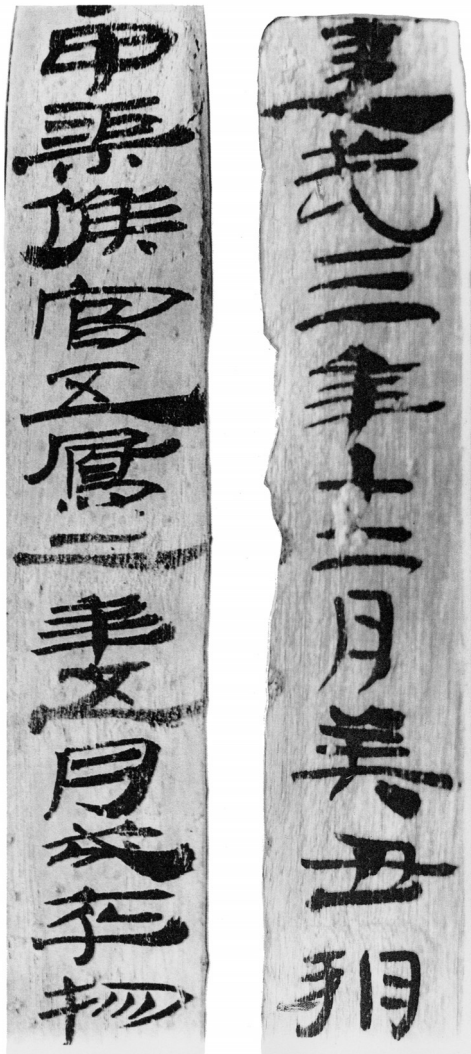 建武三年十二月癸丑朔
甲渠候官五鳳二年五月